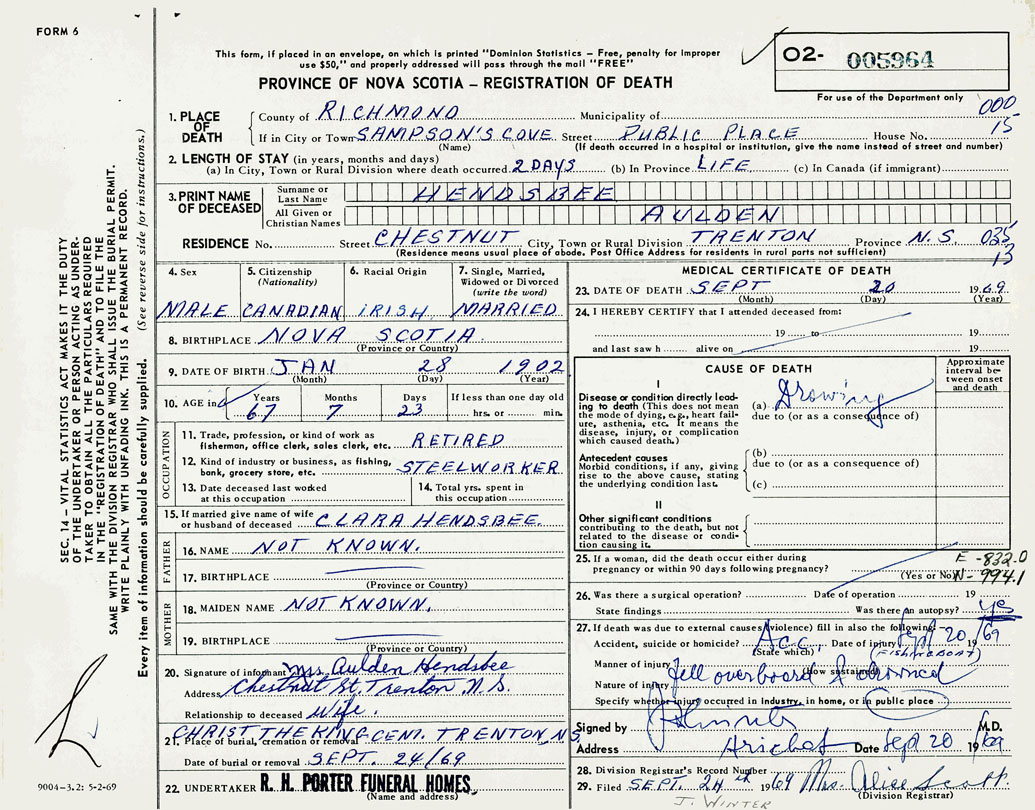 FORM 6
This form, if placed in an envelope, on which is printed "Dominion Statistics – Free, penalty for improper
use $50," and properly addressed will pass through the mail "FREE"
PROVINCE OF NOVA SCOTIA – REGISTRATION OF DEATH
O2- 005964
For use of the Department only
1. PLACE OF DEATH
County of RICHMOND Municipality of 000
If in City or Town SAMPSON'S COVE Street PUBLIC PLACE House No. 15
(Name) (If death occurred in a hospital or institution, give the name instead of street and number)
2. LENGTH OF STAY (in years, months and days)
(a) In City, Town or Rural Division where death occurred 2 DAYS (b) In Province LIFE (c) In Canada (if immigrant)
3. PRINT NAME OF DECEASED
Surname or Last Name HENDSBEE
All Given or Christian Names AULDEN
RESIDENCE No. Street CHESTNUT City, Town or Rural Division TRENTON Province N.S. 035
(Residence means usual place of abode. Post Office Address for residents in rural parts not sufficient) 13
4. Sex
MALE
5. Citizenship (Nationality)
CANADIAN
6. Racial Origin
IRISH
7. Single, Married, Widowed or Divorced (write the word)
MARRIED
8. BIRTHPLACE NOVA SCOTIA
(Province or Country)
9. DATE OF BIRTH JAN 28 1902
(Month) (Day) (Year)
10. AGE in Years Months Days If less than one day old
67 7 23 hrs. or min.
OCCUPATION
11. Trade, profession, or kind of work as
fisherman, office clerk, sales clerk, etc. RETIRED
12. Kind of industry or business, as fishing,
bank, grocery store, etc. STEELWORKER
13. Date deceased last worked
at this occupation
14. Total yrs. spent in
this occupation
15. If married give name of wife
or husband of deceased CLARA HENDSBEE.
FATHER
16. NAME NOT KNOWN.
17. BIRTHPLACE
(Province or Country)
MOTHER
18. MAIDEN NAME NOT KNOWN.
19. BIRTHPLACE
(Province or Country)
20. Signature of informant Mrs. Aulden Hendsbee
Address Chestnut St. Trenton N.S.
Relationship to deceased Wife.
CHRIST THE KING CEM. TRENTON, N.S.
21. Place of burial, cremation or removal
Date of burial or removal SEPT. 24/69
22. UNDERTAKER R. H. PORTER FUNERAL HOMES
(Name and address)
MEDICAL CERTIFICATE OF DEATH
23. DATE OF DEATH SEPT 20 1969
(Month) (Day) (Year)
24. I HEREBY CERTIFY that I attended deceased from:
19 to 19
and last saw h alive on 19
CAUSE OF DEATH
Approximate interval between onset and death
I
Disease or condition directly leading
to death (This does not mean
the mode of dying, e.g., heart failure,
asthenia, etc. It means the
disease, injury, or complication
which caused death.)
(a) Drowing
due to (or as a consequence of)
Antecedent causes
Morbid conditions, if any, giving
rise to the above cause, stating
the underlying condition last.
(b)
due to (or as a consequence of)
(c)
II
Other significant conditions
contributing to the death, but not
related to the disease or condition
causing it.
25. If a woman, did the death occur either during
pregnancy or within 90 days following pregnancy?
(Yes or No)
E-832.0
N-994.1
26. Was there a surgical operation? Date of operation 19
State findings Was there an autopsy? yes
27. If death was due to external causes (violence) fill in also the following:
Accident, suicide or homicide? Acc. Date of injury Sept 20 1969
(State which) (FISHING BOAT)
Manner of injury (How sustained)
fell overboard & drowned
Nature of injury
Specify whether injury occurred in Industry, in home, or in public place
Signed by M.D.
Address Arichat Date Sept 20 1969
28. Division Registrar's Record Number
29. Filed SEPT. 24th 1969 Mrs. Alice Scott.
(Division Registrar)
J. WINTER
SEC. 14 – VITAL STATISTICS ACT MAKES IT THE DUTY
OF THE UNDERTAKER OR PERSON ACTING AS UNDER-
TAKER TO OBTAIN ALL THE PARTICULARS REQUIRED
IN THE "REGISTRATION OF DEATH" AND TO FILE THE
SAME WITH THE DIVISION REGISTRAR WHO SHALL ISSUE THE BURIAL PERMIT.
WRITE PLAINLY WITH UNFADING INK. THIS IS A PERMANENT RECORD.
Every item of information should be carefully supplied. (See reverse side for instructions.)
9004-3.2: 5-2-69